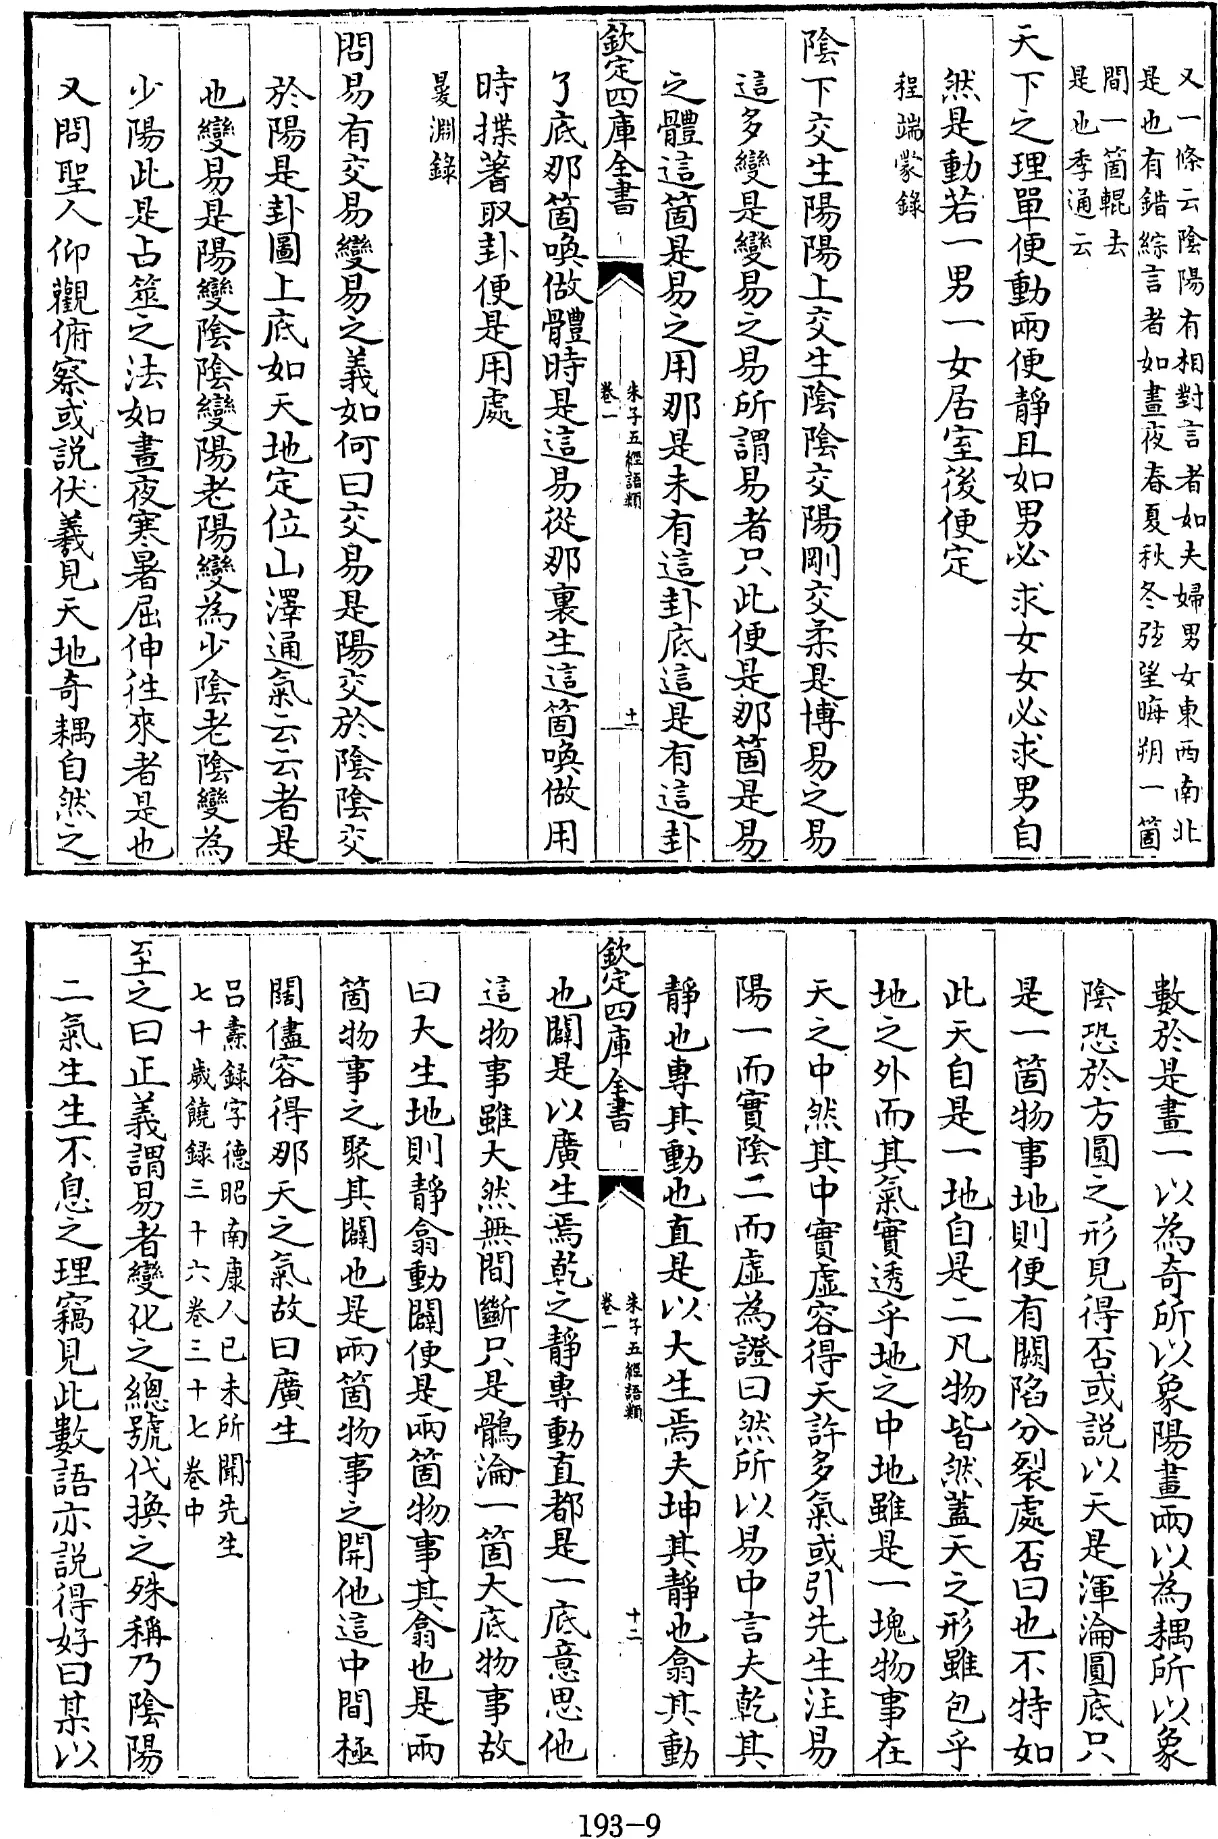 又一條云陰陽有相對言者如夫婦男女東西南北
是也有錯綜言者如晝夜春夏秋冬弦望晦朔一箇
間一箇輥去
是也季通云
天下之理單便動兩便靜且如男必求女女必求男自
然是動若一男一女居室後便定
程端蒙錄
陰下交生陽陽上交生陰陰交陽剛交柔是博易之易
這多變是變易之易所謂易者只此便是那箇是易
之體這箇是易之用那是未有這卦底這是有這卦
欽定四庫全書
朱子五經語類
卷一
十一
了底那箇喚做體時是這易從那裏生這箇喚做用
時揲蓍取卦便是用處
㬊淵錄
問易有交易變易之義如何曰交易是陽交於陰陰交
於陽是卦圖上底如天地定位山澤通氣云云者是
也變易是陽變陰陰變陽老陽變為少陰老陰變為
少陽此是占筮之法如晝夜寒暑屈伸往來者是也
又問聖人仰觀俯察或説伏羲見天地奇耦自然之
數於是畫一以為奇所以象陽畫兩以為耦所以象
陰恐於方圓之形見得否或説以天是渾淪圓底只
是一箇物事地則便有闕陷分裂處否曰也不特如
此天自是一地自是二凡物皆然蓋天之形雖包乎
地之外而其氣實透乎地之中地雖是一塊物事在
天之中然其中實虛容得天許多氣或引先生注易
陽一而實陰二而虛為證曰然所以易中言夫乾其
靜也專其動也直是以大生焉夫坤其靜也翕其動
欽定四庫全書
朱子五經語類
卷一
十二
也闢是以廣生焉乾之靜專動直都是一底意思他
這物事雖大然無間斷只是鶻淪一箇大底物事故
曰大生地則靜翕動闢便是兩箇物事其翕也是兩
箇物事之聚其闢也是兩箇物事之開他這中間極
闊儘容得那天之氣故曰廣生
呂燾録字德昭南康人已未所聞先生
七十歲饒録三十六卷三十七卷中
至之曰正義謂易者變化之總號代換之殊稱乃陰陽
二氣生生不息之理竊見此數語亦説得好曰某以
193-9